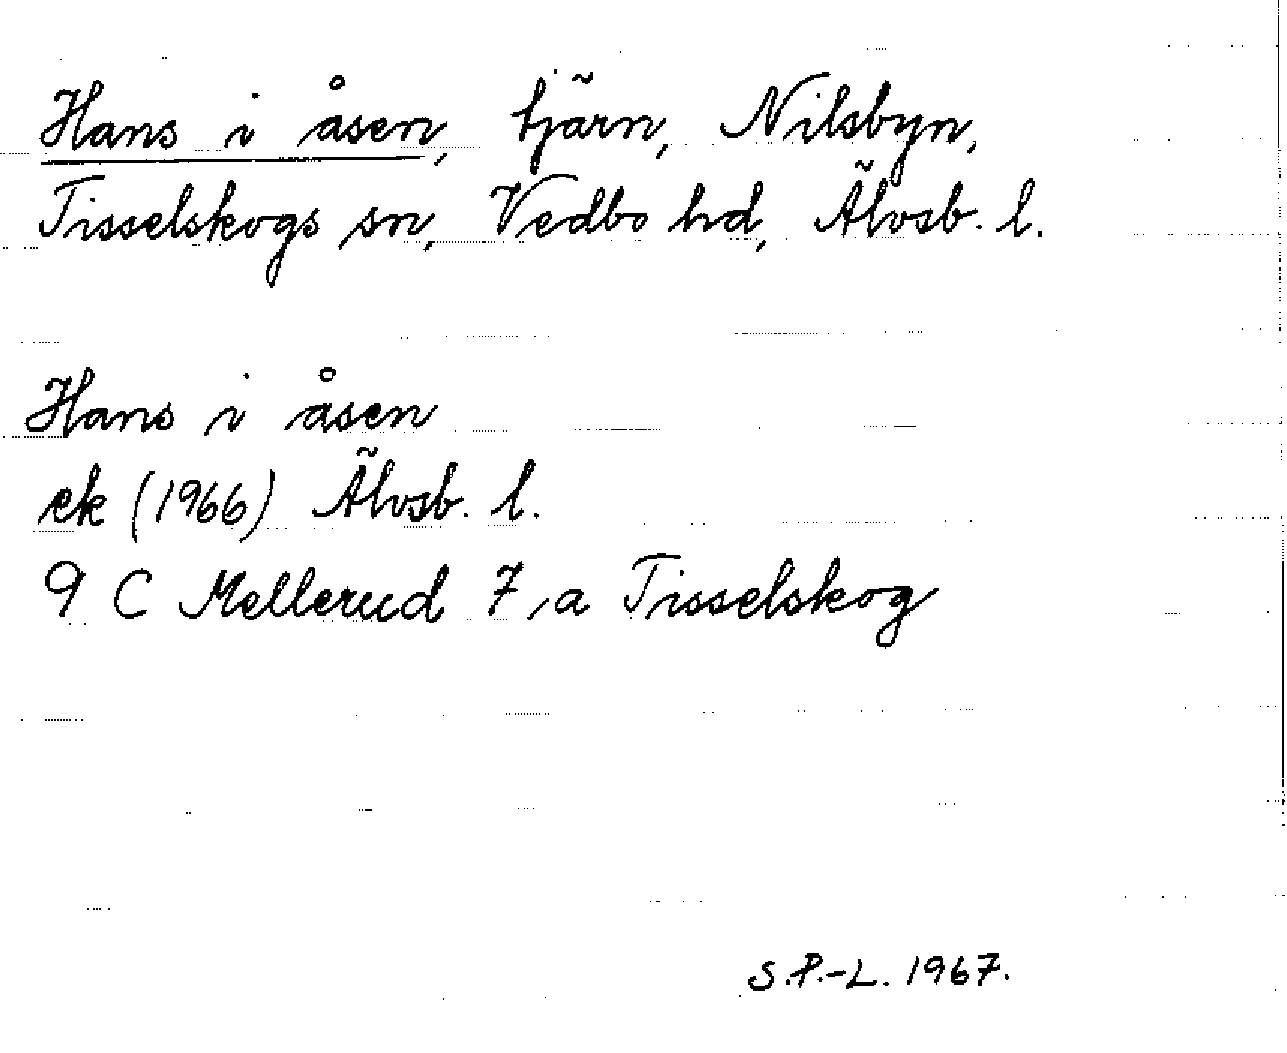 Hans i åsen, tjärn, Nilsbyn,
Tisselskogs sn, Vedbo hd, Älvsb. l.
Hans i åsen
ek (1966) Älvsb. l.
9 C Mellerud 7, a Tisselskog
S.P.-L. 1967.